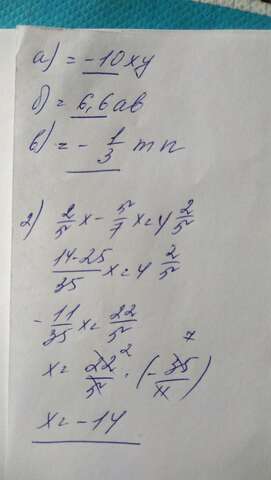 а) = -10xy
б) = 6,6ab
в) = - 1/3 mn
2) 2/5 x - 5/7 x = 4 2/5
14-25/35 x = 4 2/5
- 11/35 x = 22/5
x = 22/5 2 · (- 35/11) 7
x = -14